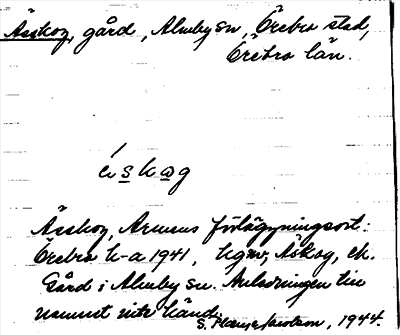 Åskog, gård, Almby sn, Örebro stad,
Örebro län.
Åskog, Armens förläggningsort:
Örebro k-a 1941, hgmv, Åskog, ek.
Gård i Almby sn. Anledningen till
namnet inte känd.
S. 1944.